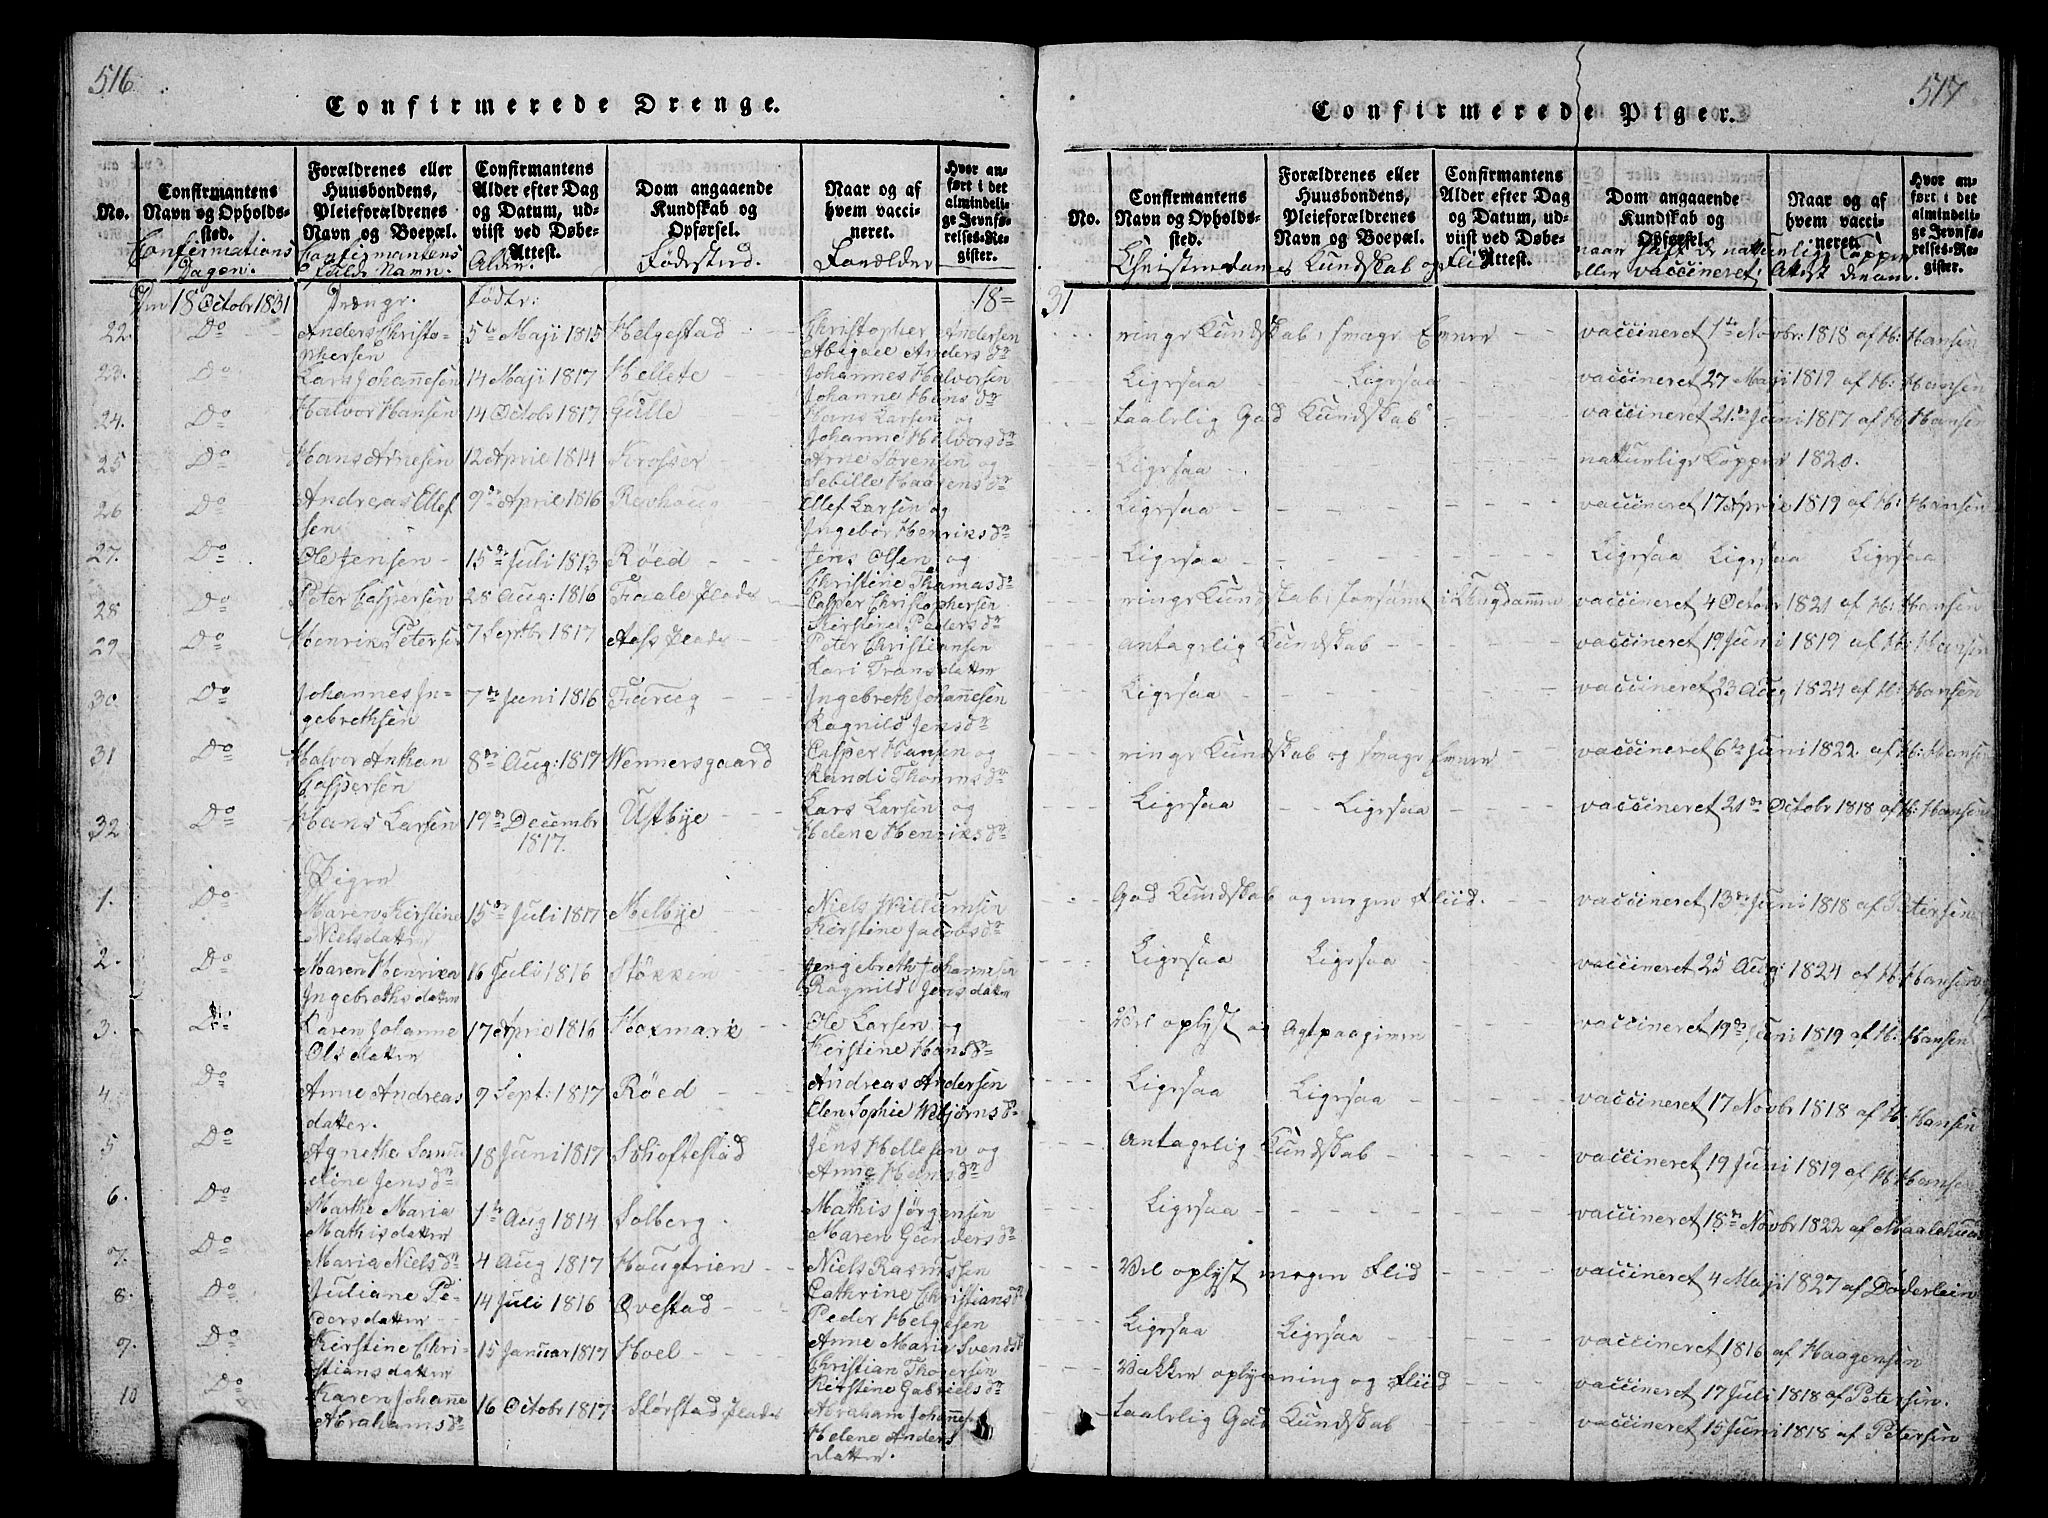 516
Confirmerede Drenge.
No.
Confirmantens Navn og Opholds-sted.
Forældrenes eller Huusbondens, Pleieforældrenes Navn og Boepæl.
Confirmantens Alder efter Dag og Datum, ud-viist ved Døbe-Attest.
Dom angaaende Kundskab og Opførsel.
Naar og af hvem vacci-neret.
Hvor an-ført i det almindeli-ge Jevnfø-relses-Re-gister.
Confirmations Dagen.
Confirmantens fulde Namn.
Alder.
Fødested.
Forælder
Den 18 Octobr 1831 Drenge. fødte: 18=
22. Do Anders Christo- 5te Maji 1815 Helgestad Christopher Andersen
phersen Abigael Anders dr
23. Do Lars Johannesen 14 Maji 1817 Hellete Johannes Halvorsen
Johanne Hans dr
24. Do Halvor Hansen 14 Octobr 1817 Gulle Hans Larsen og
Johanne Halvors dr
25 Do Hans Arnesen 12 April 1814 Krosser Arne Sørensen og
Sebille Haagens dr
26 Do Andreas Ellef 9de April 1816 Revhoug Ellef Larsen og
sen Ingebor Henriks dr
27. Do Ole Jensen 15de Juli 1813 Røed Jens Olsen og
Christine Thamas dr
28 Do Peter Caspersen 28 Aug: 1816 Faale Plads Casper Christophersen
Kirstine Peders dr
29 Do Henrik Petersen 7 Septbr 1817 Aass Plads Peter Christiansen
Kari Frans datter
30. Do Johannes In- 7de Juni 1816 Furueg Ingebreth Johannesen
gebrethsen Ragnild Jens dr
31 Do Halvor Anthan 8de Aug: 1817 Wennersgaard Casper Hansen og
Caspersen Randi Thoms dr
32 Do Hans Larsen 19de Decembr Ustbye Lars Larsen og
1817. Helene Henriks dr
Pigen
1. Do Maren Kirstine 15de Juli 1817 Melbye Niels Willumsen
Nielsdatter Kirstine Jacobs dr
2. Do Maren Henrika 16 Juli 1816 Støkken Ingebreth Johannesen
Ingebrethsdatter Ragnild Jens datter
3. Do Karen Johanne 17 April 1816 Hoxmark Ole Larsen og
Olsdatter Kirstine Hans dr
4. Do Anne Andreas 9 Sept: 1817 Røed Andreas Andersen
datter. Elen Sophie Webjørns dr
5 Do Agnethe Samu 18 Juni 1817 Schoftestad Jens Hellesen og
eline Jens dr Anne Hans dr
6. Do Marthe Maria 1te Aug 1814 Solberg. Mathis Jørgensen
Mathisdatter Maren Gunders dr
7. Do Maria Niels dr 4 Aug 1817 Hougtrien Niels Rasmussen
Cathrine Christians dr
8. Do Juliane Pe- 14 Juli 1816 Qvestad Peder Helgesen
dersdatter Anne Maria Svends dr
9. Do Kirstine Chri- 15 Januar 1817 Hoel Christian Thorersen
stiansdatter Kirstine Gabriels dr
10 Do Karen Johanne 16 Octobr 1817 Størstad Plads Abraham Johannes
Abrahams dr Helene Anders
datter.
517
Confirmerede Piger.
No.
Confirmantens Navn og Opholds-sted.
Forældrenes eller Huusbondens, Pleieforældrenes Navn og Boepæl.
Confirmantens Alder efter Dag og Datum, ud-viist ved Døbe-Attest.
Dom angaaende Kundskab og Opførsel.
Naar og af hvem vacci-neret.
Hvor an-ført i det almindeli-ge Jevnfø-relses-Re-gister.
Christendoms Kundskab og Flid
naar haft de naturlige Copper
eller vaccineret; Attest derom.
31
ringe Kundskab, svage Evner vaccineret 1te Novbr: 1818 af H: Hansen
Ligesaa Ligesaa vaccineret 27 Maji 1819 af H: Hansen
taalelig God Kundskab vaccineret 21de Juni 1817 af H: Hansen
Ligesaa naturlige Copper 1820.
Ligesaa vaccineret 17 April 1819 af H: Hansen
Ligesaa Ligesaa Ligesaa Ligesaa
ringe Kundskab, forsømt i Ungdommen vaccineret 4 Octobr 1821 af H: Hansen
antagelig Kundskab vaccineret 19 Juni 1819 af H: Hansen
Ligesaa vaccineret 23 Aug 1824 af H: Hansen
ringe Kundskab og svage Evner vaccineret 6te Juni 1822 af H: Hansen
Ligesaa Ligesaa vaccineret 21de Octobr 1818 af H: Hansen
God Kundskab og megen Fliid. vaccineret 13de Juni 1818 af Petersen
Ligesaa Ligesaa vaccineret 25 Aug: 1824 af H: Hansen
Vel oplyst og Agtpaagiven vaccineret 19de Juni 1819 af H: Hansen
Ligesaa Ligesaa vaccineret 17 Novbr 1818 af H: Hansen
Antagelig Kundskab vaccineret 19 Juni 1819 af H: Hansen
Ligesaa vaccineret 18de Novbr 1822 af Maalehuus
Vel oplyst megen Flid vaccineret 4 Maji 1827 af Døderlein
Ligesaa Ligesaa vaccineret 1816 af Haagensen
Vakker oplysning og Fliid vaccineret 17 Juli 1818 af Petersen.
taalelig God Kundskab vaccineret 15 Juni 1818 af Petersen